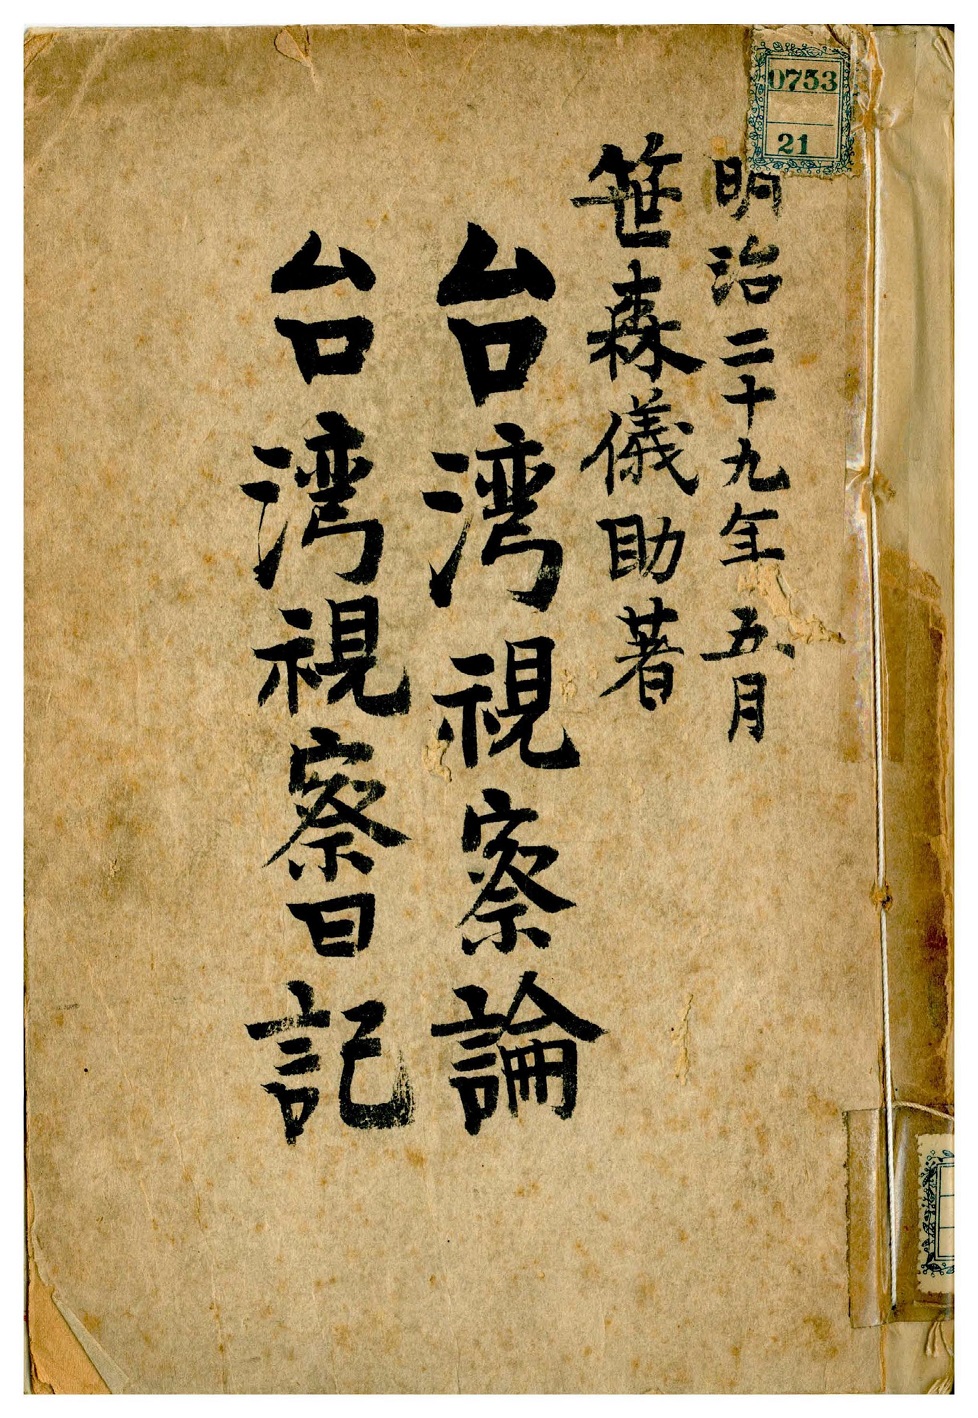 明治二十九年五月
笹森儀助著
台湾視察論
台湾視察日記
0753
21